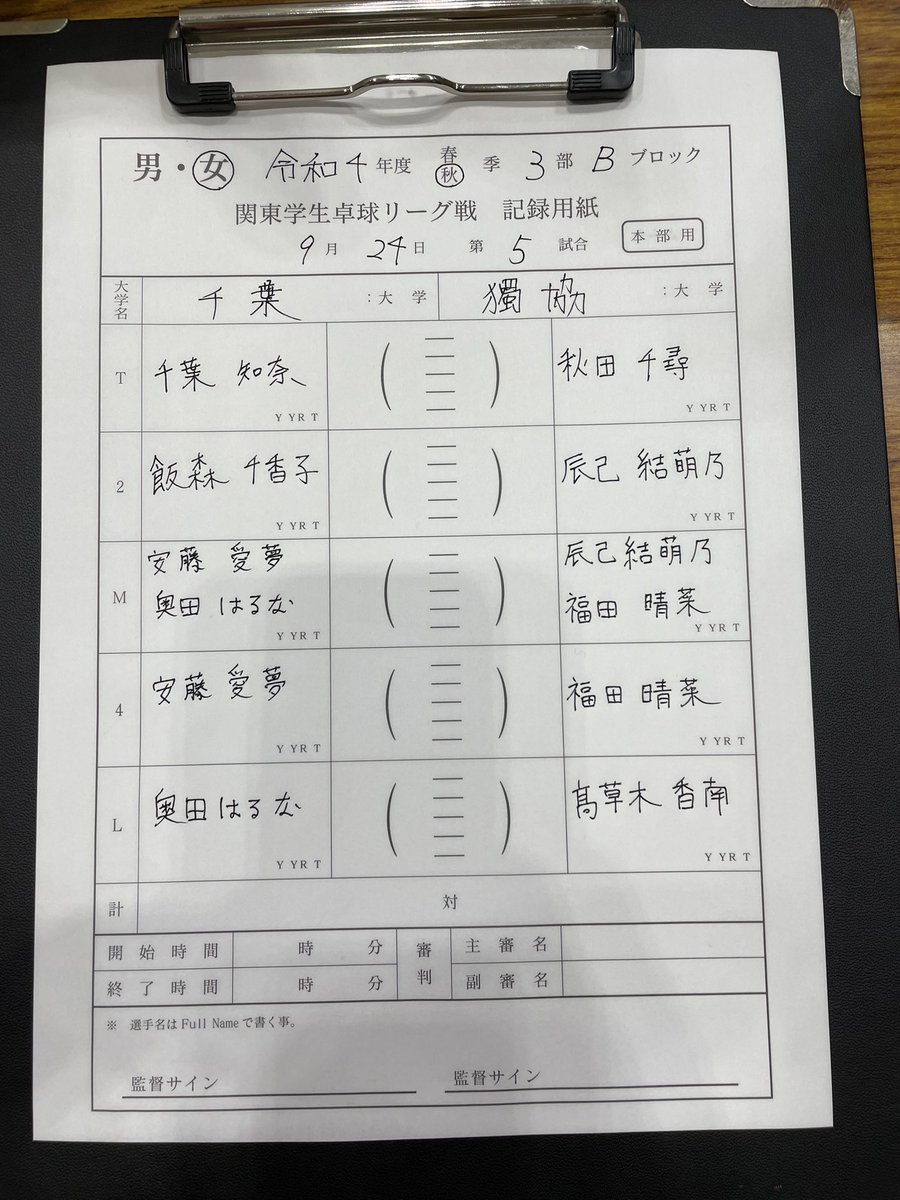 男・女 令和4年度 春秋季 3部 B ブロック
関東学生卓球リーグ戦 記録用紙
9月 24日 第 5 試合 本部用
大学名 千葉 :大学 獨協 :大学
T 千葉 知奈 ( ) 秋田 千尋
Y YR T Y YR T
2 飯森 千香子 ( ) 辰己 結萌乃
Y YR T Y YR T
安藤 愛夢 辰己結萌乃
M ( )
奥田 はるな 福田 晴菜
Y YR T Y YR T
4 安藤 愛夢 ( ) 福田 晴菜
Y YR T Y YR T
L 奥田はるな ( ) 髙草木 香南
Y YR T Y YR T
計 対
開始時間 時 分 審判 主審名
終了時間 時 分 副審名
※ 選手名は Full Name で書く事。
監督サイン 監督サイン